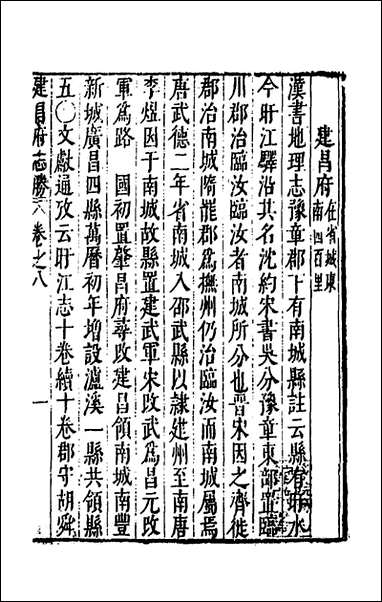 建昌府在省城東南四百里
漢書地理志豫章郡下有南城縣註云縣有盱水
今盱江驛沿其名沈約宋書吳分豫章東部置臨
川郡治臨汝臨汝者南城所分也晉宋因之齊徙
郡治南城隋罷郡為撫州仍治臨汝而南城屬焉
唐武德二年省南城入邵武縣以隸建州至南唐
李煜因于南城故縣置建武軍宋改武為昌元改
軍為路　國初置肇昌府尋改建昌領南城南豐
新城廣昌四縣萬曆初年增設瀘溪一縣共領縣
五〇文獻通攷云盱江志十卷續十卷郡守胡舜
建昌府志勝　卷之八　一